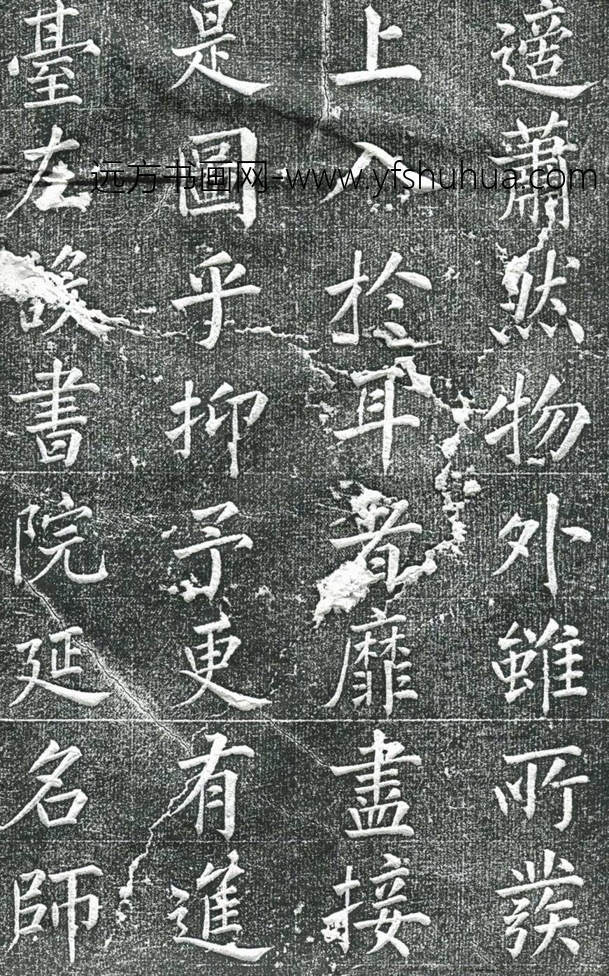 適蕭然物外雖所
上入於耳者靡盡接
是圖乎抑予更有進
臺左設書院延名師
远方书画网-www.yfshuhua.com